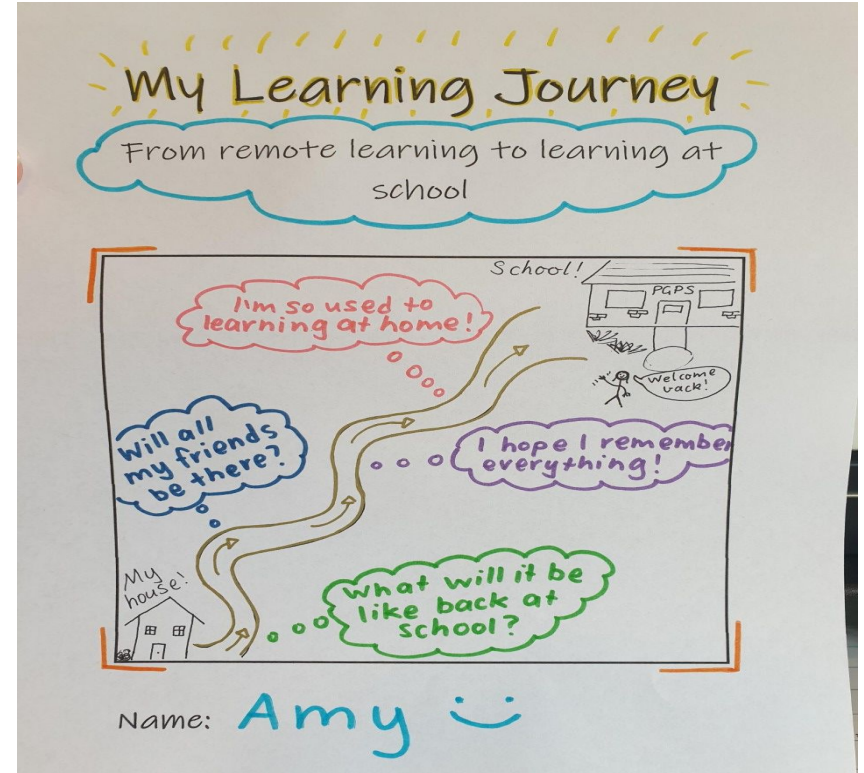 My Learning Journey
From remote learning to learning at
school
School!
PGPS
I'm so used to
learning at home!
Welcome
back!
Will all
my friends
be there?
I hope I remember
everything!
My
house!
What will it be
like back at
school?
Name: Amy